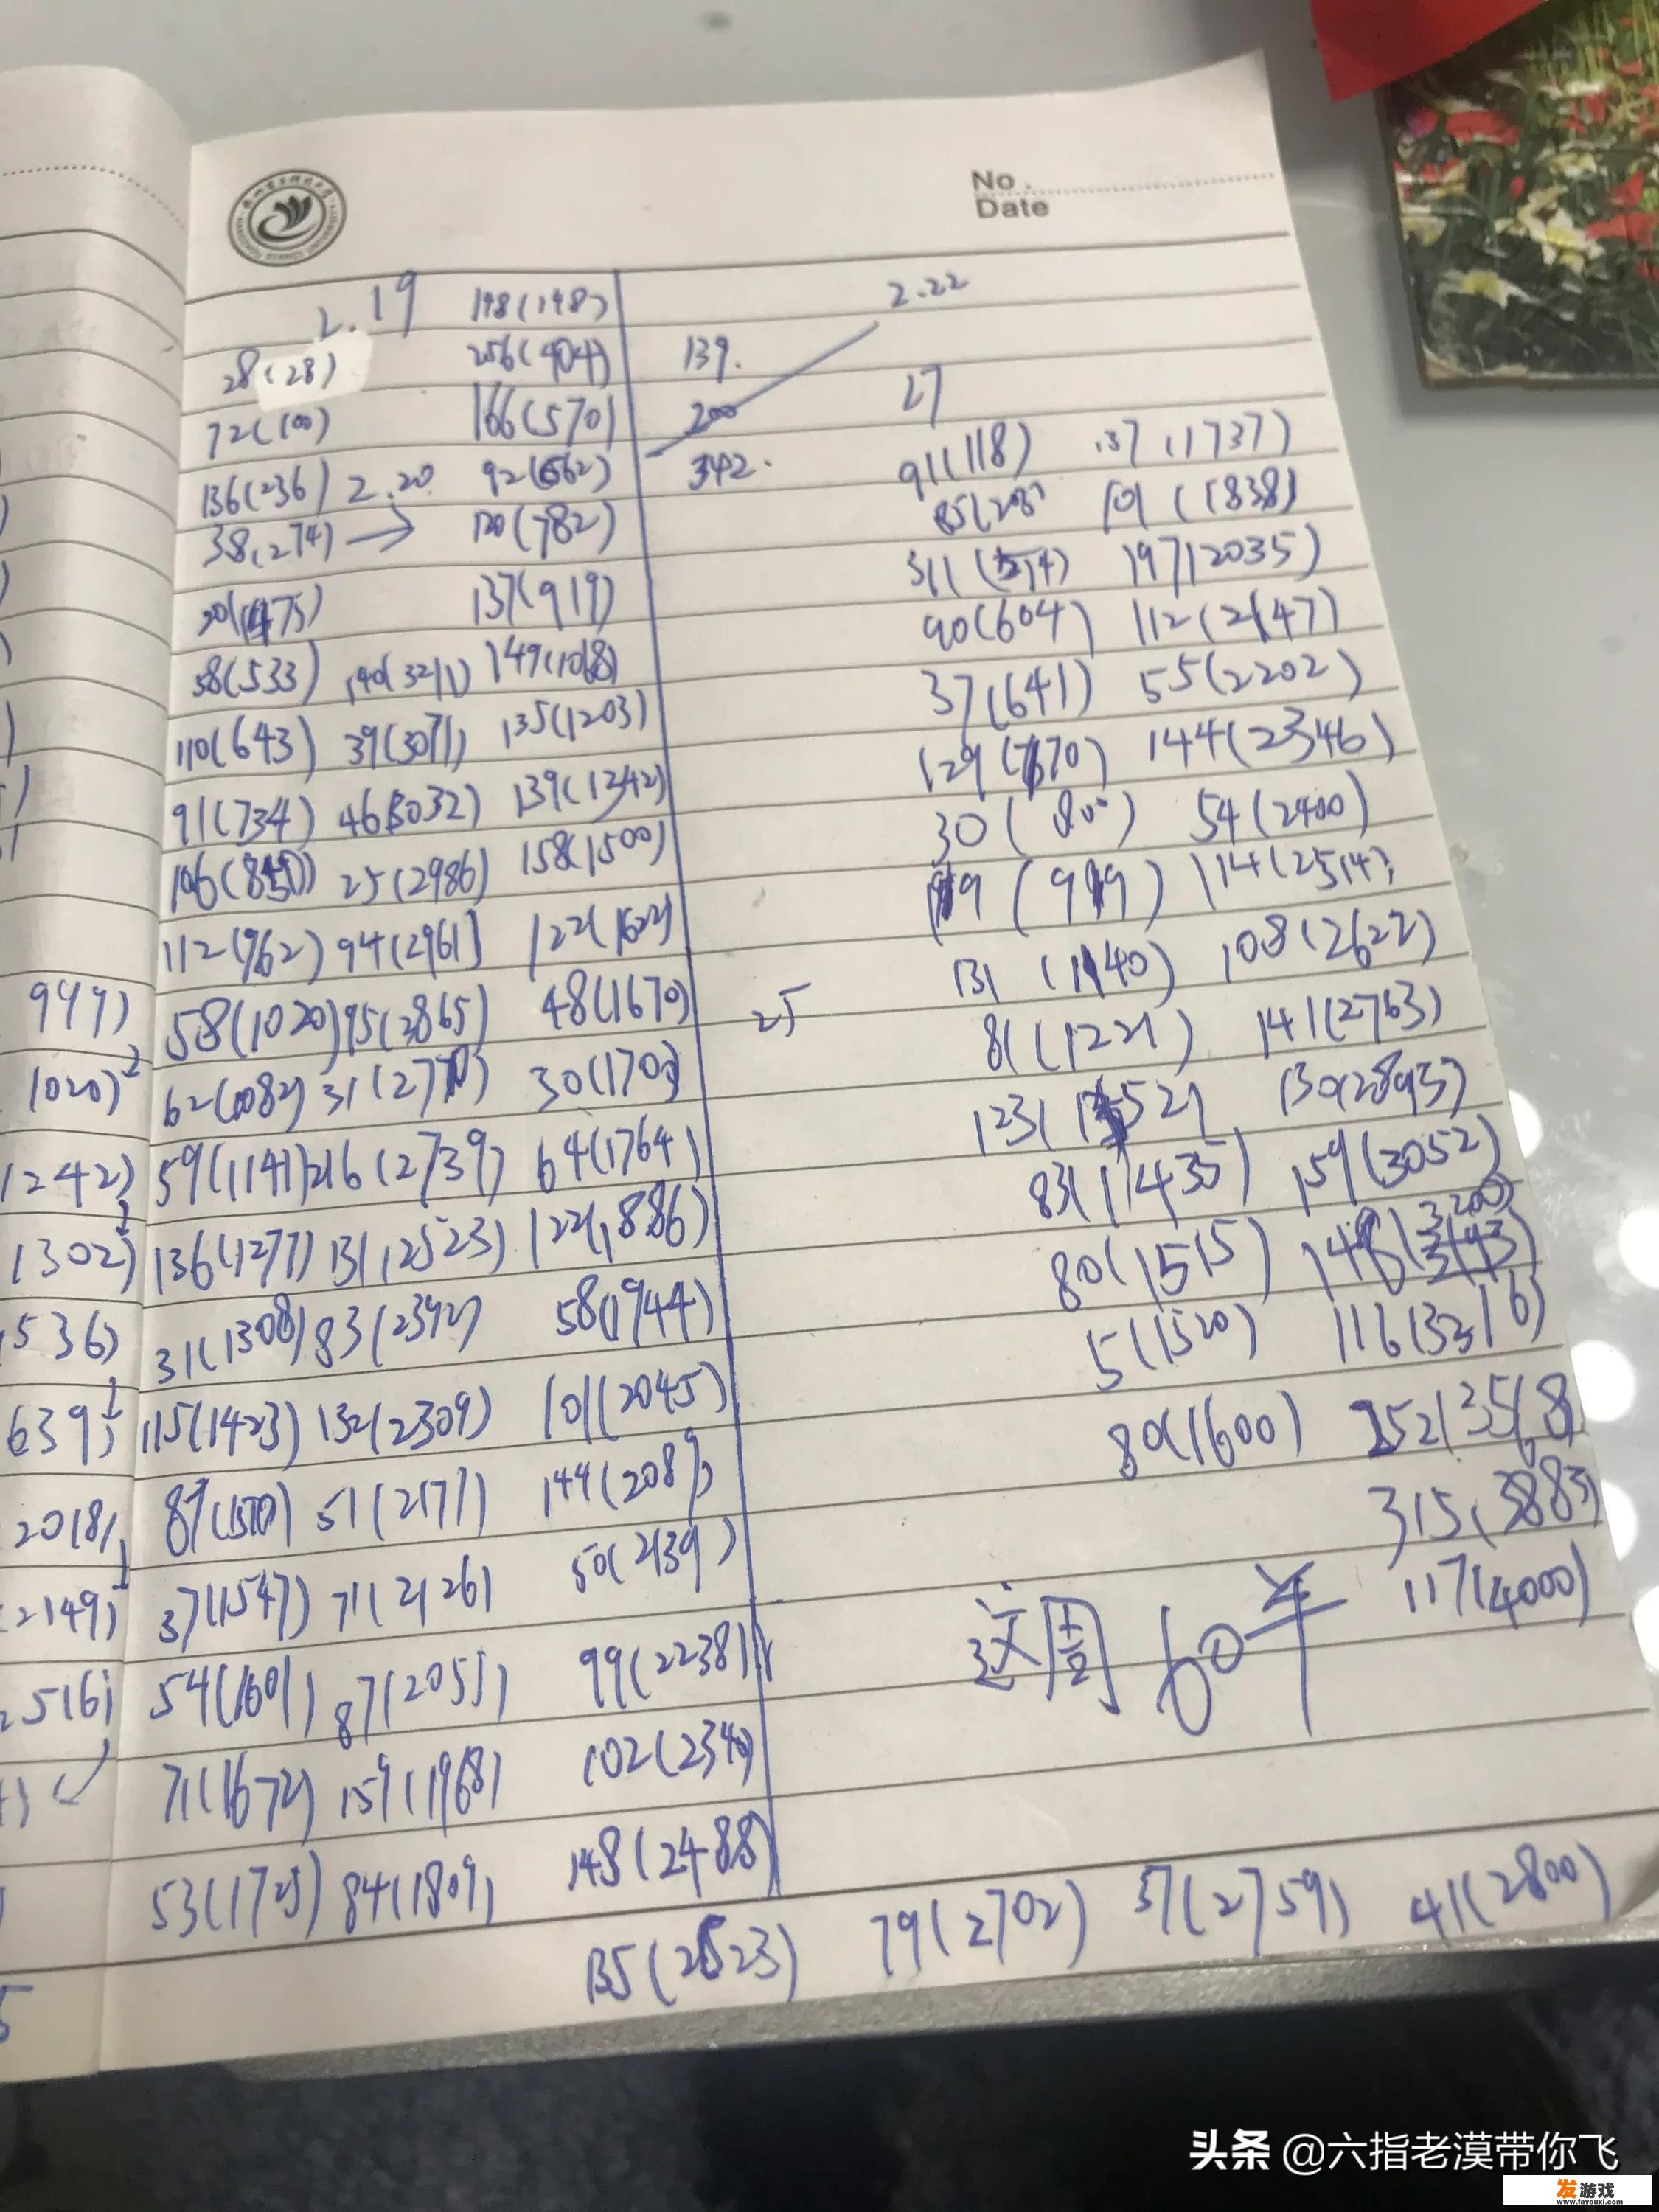 No.
Date
2.19
198(148)
2.22
28(28)
256(404)
139.
72(100)
166(570)
200
27
136(236) 2.20
92(662)
342.
91(118)
137(1737)
38(274)
120(782)
85(203
101(1838)
201(475)
137(919)
311(514)
197(2035)
58(533) 140(3211) 149(1068)
90(604) 112(2147)
110(643) 39(3071) 135(1203)
37(641) 55(2202)
91(734) 46(3032) 139(1342)
129(770) 144(2346)
106(850) 25(2986) 158(1500)
30(800) 54(2400)
112(962) 94(2961) 122(1622)
119(919) 114(2514)
999) 58(1020) 95(2865) 48(1670)
25
131(1140) 108(2622)
1020) 62(1082) 31(2770) 30(1700)
81(1221) 141(2763)
1242) 59(1141) 216(2739) 64(1764)
123(1352) 130(2893)
1302) 136(1277) 131(2523) 122(1886)
83(1435) 159(3052)
536) 31(1308) 83(2392) 58(1944)
80(1515) 148(3200)
639) 115(1423) 132(2309) 101(2045)
5(1520) 116(3316)
2018) 87(1510) 51(2177) 144(2089)
80(1600) 252(3568)
2149) 37(1547) 71(2126) 50(2139)
315(3883)
2516) 54(1601) 87(2055) 99(2238)
这周60羊
117(4000)
71(1672) 159(1968) 102(2340)
53(1725) 84(1809) 148(2488)
135(2623) 79(2702) 57(2759) 41(2800)
头条 @六指老漠带你飞
发游戏
www.fayouxi.com